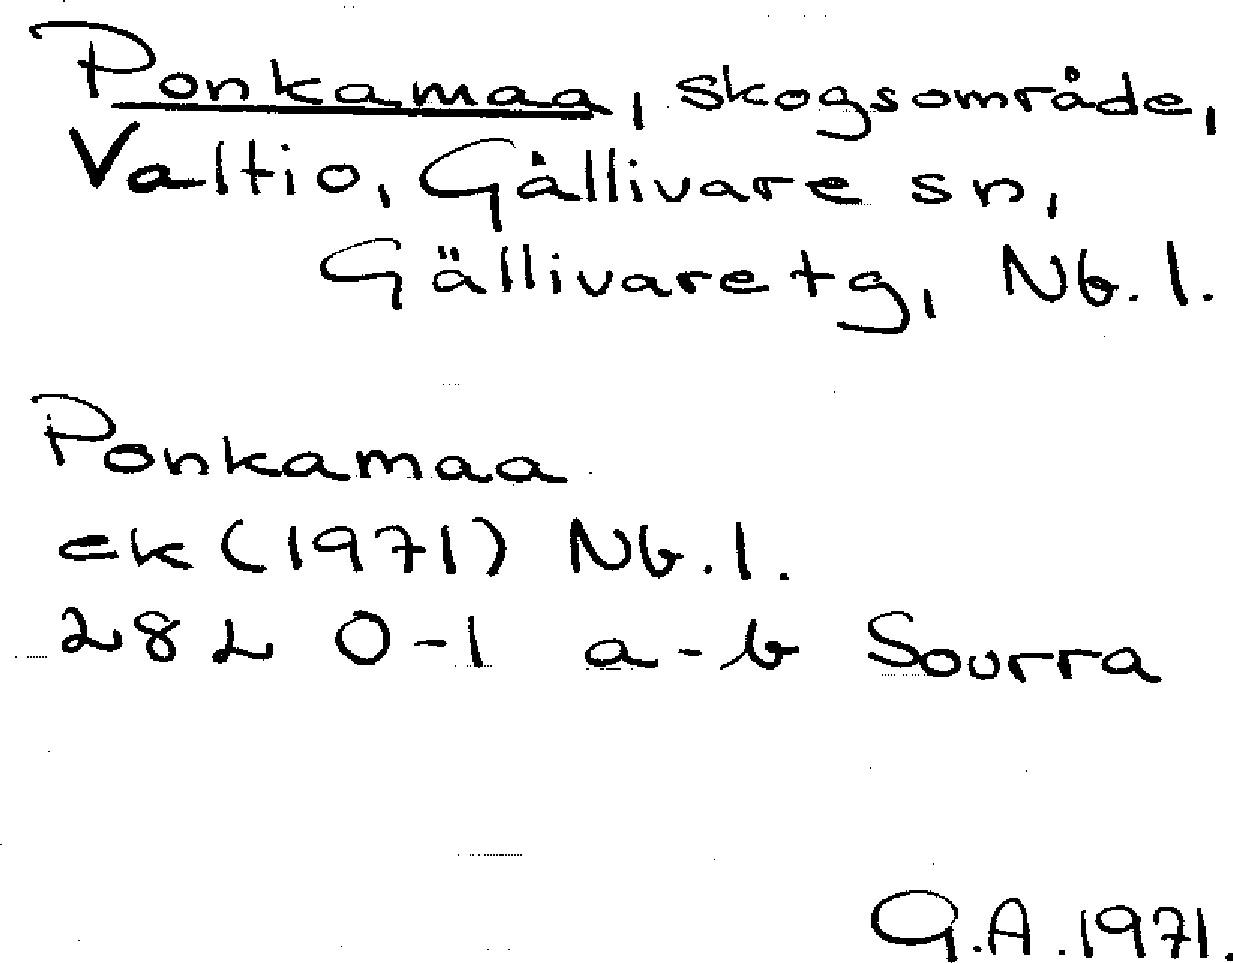 Ponkamaa, skogsområde,
Valtio, Gällivare sn,
Gällivare tg, Nb. l.
Ponkamaa
ek (1971) Nb. l.
28 L 0-1 a-b Sourra
G.A. 1971.